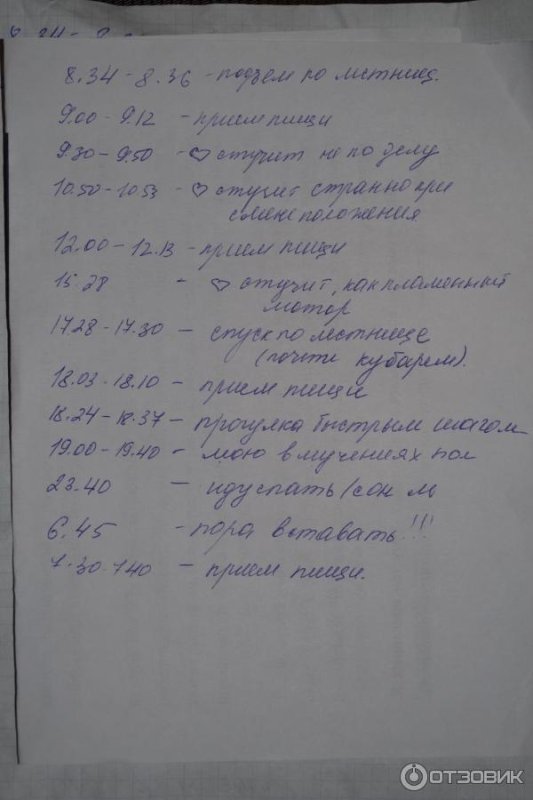 8.34 - 8.36 - подъем по лестниц.
9.00 - 9.12 - прием пищи
9.30 - 9.50 - ♡ стучит не по делу
10.50 - 10.53 - ♡ стучит странно при
смене положения
12.00 - 12.13 - прием пищи
15.28 - ♡ стучит, как пламенный
мотор
17.28 - 17.30 - спуск по лестнице
(почти кубарем).
18.03 - 18.10 - прием пищи
18.24 - 18.37 - прогулка быстрым шагом
19.00 - 19.40 - мою в мучениях пол
23.40 - иду спать/сон
6.45 - пора вставать!!!
7.30-740 - прием пищи.
ОТЗОВИК